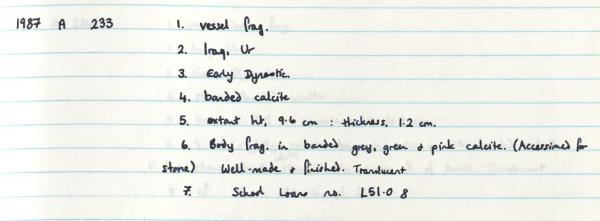 1987 A 233 1. vessel frag.
2. Iraq, Ur
3. Early Dynastic.
4. banded calcite
5. extant ht, 9.6 cm : thickness, 1.2 cm.
6. Body frag. in banded grey, green & pink calcite. (Accessioned for
stone) Well-made & finished. Translucent
7. School Loans no. L51.0 8